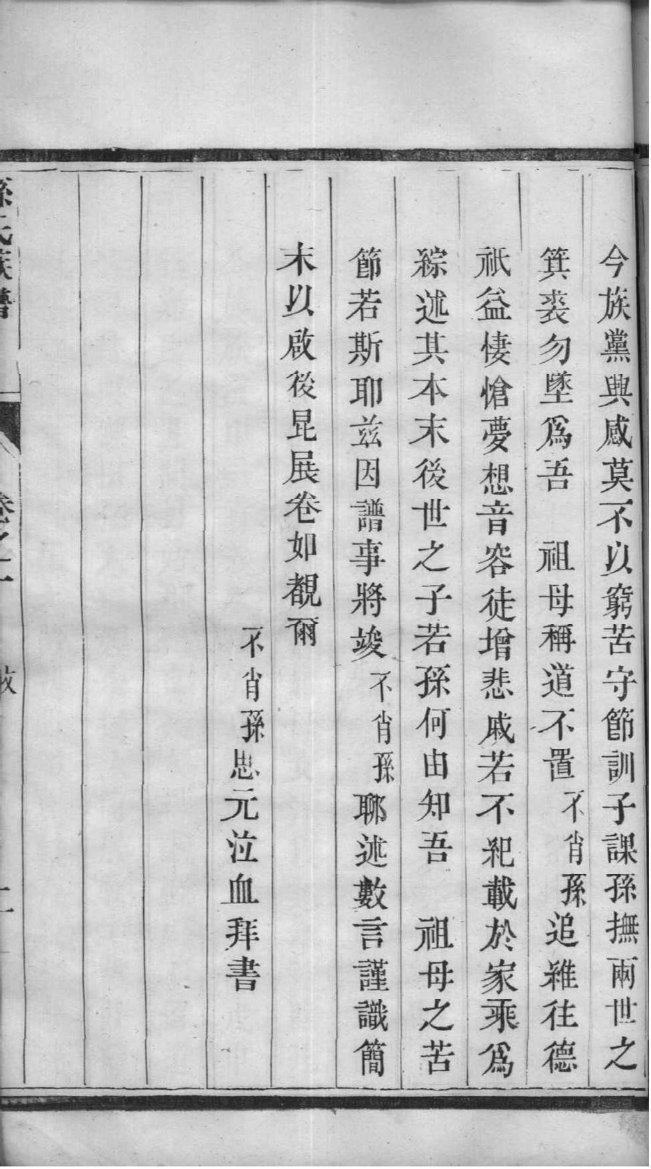 今族黨興感莫不以窮苦守節訓子課孫撫兩世之
箕裘勿墜爲吾　祖母稱道不置不肖孫追維往德
祇益悽愴夢想音容徒增悲戚若不紀載於家乘爲
綜述其本末後世之子若孫何由知吾　祖母之苦
節若斯耶茲因譜事將竣不肖孫聊述數言謹識簡
末以啟後昆展卷如覩爾
不肖孫思元泣血拜書
孫氏族譜　卷之二